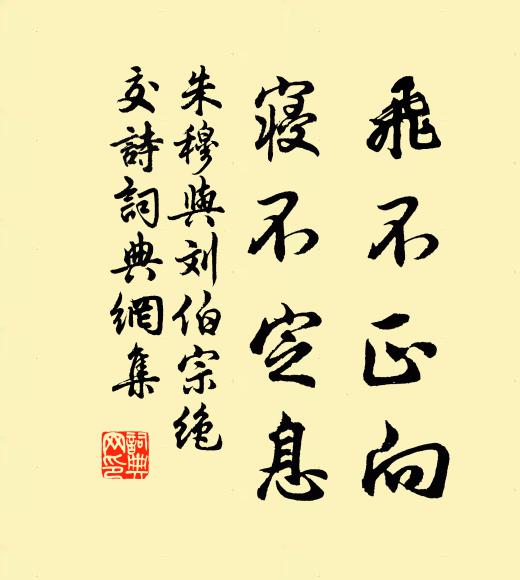 飛不正向
寝不定息
朱穆與刘伯宗绝
交詩詞典網集
詞典
网印